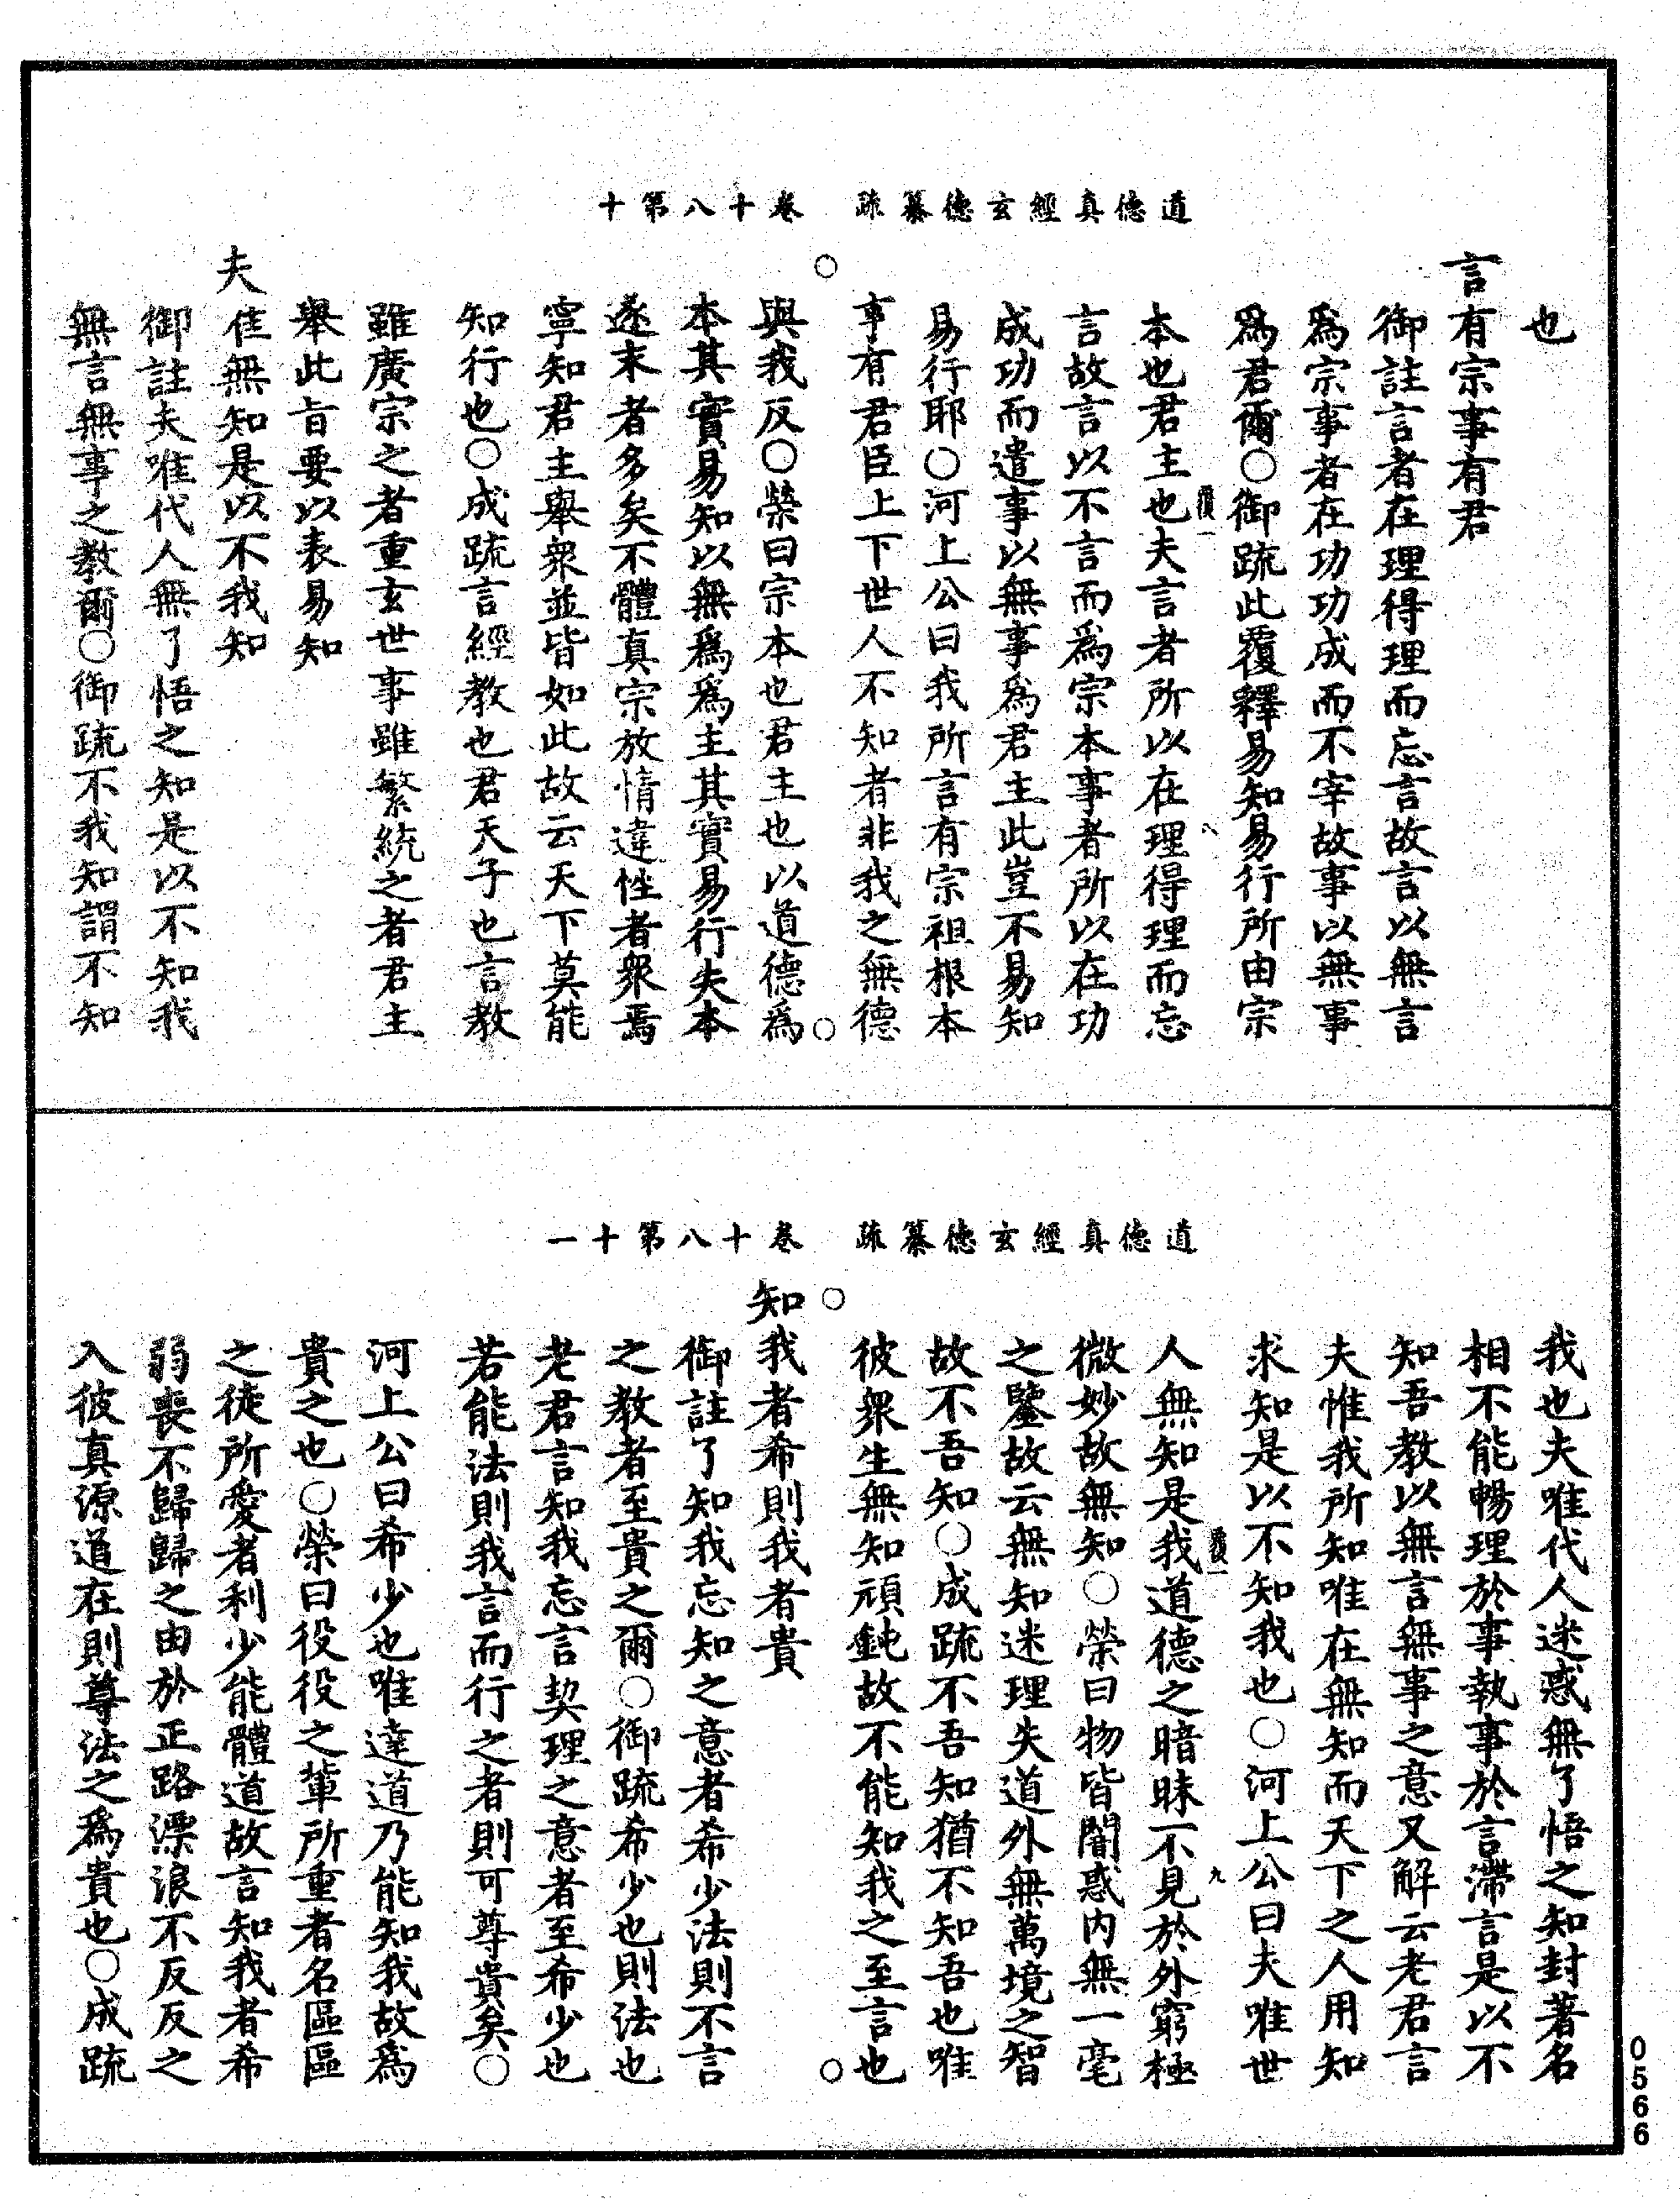 道德真經玄德纂疏　卷十八第十
也
言有宗事有君
御註言者在理得理而忘言故言以無言
爲宗事者在功功成而不宰故事以無事
爲君爾○御疏此覆釋易知易行所由宗
本也君主也夫言者所以在理得理而忘
言故言以不言而爲宗本事者所以在功
成功而遣事以無事爲君主此豈不易知
易行耶○河上公曰我所言有宗祖根本
事有君臣上下世人不知者非我之無德
與我反○榮曰宗本也君主也以道德爲
本其實易知以無爲爲主其實易行失本
逐末者多矣不體真宗放情違性者衆焉
寧知君主舉衆並皆如此故云天下莫能
知行也○成疏言經教也君天子也言教
雖廣宗之者重玄世事雖繁統之者君主
舉此旨要以表易知
夫隹無知是以不我知
御註夫唯代人無了悟之知是以不知我
無言無事之教爾○御疏不我知謂不知
道德真經玄德纂疏　卷十八第十一
我也夫唯代人迷惑無了悟之知封著名
相不能暢理於事執事於言滯言是以不
知吾教以無言無事之意又解云老君言
夫惟我所知唯在無知而天下之人用知
求知是以不知我也○河上公曰夫唯世
人無知是我道德之暗昧不見於外窮極
微妙故無知○榮曰物皆闇惑内無一毫
之鑒故云無知迷理失道外無萬境之智
故不吾知○成疏不吾知猶不知吾也唯
彼衆生無知頑鈍故不能知我之至言也
知我者希則我者貴
御註了知我忘知之意者希少法則不言
之教者至貴之爾○御疏希少也則法也
老君言知我忘言契理之意者至希少也
若能法則我言而行之者則可尊貴矣○
河上公曰希少也唯達道乃能知我故爲
貴之也○榮曰役役之輩所重者名區區
之徒所愛者利少能體道故言知我者希
弱喪不歸歸之由於正路漂浪不反反之
入彼真源道在則尊法之爲貴也○成疏
0566